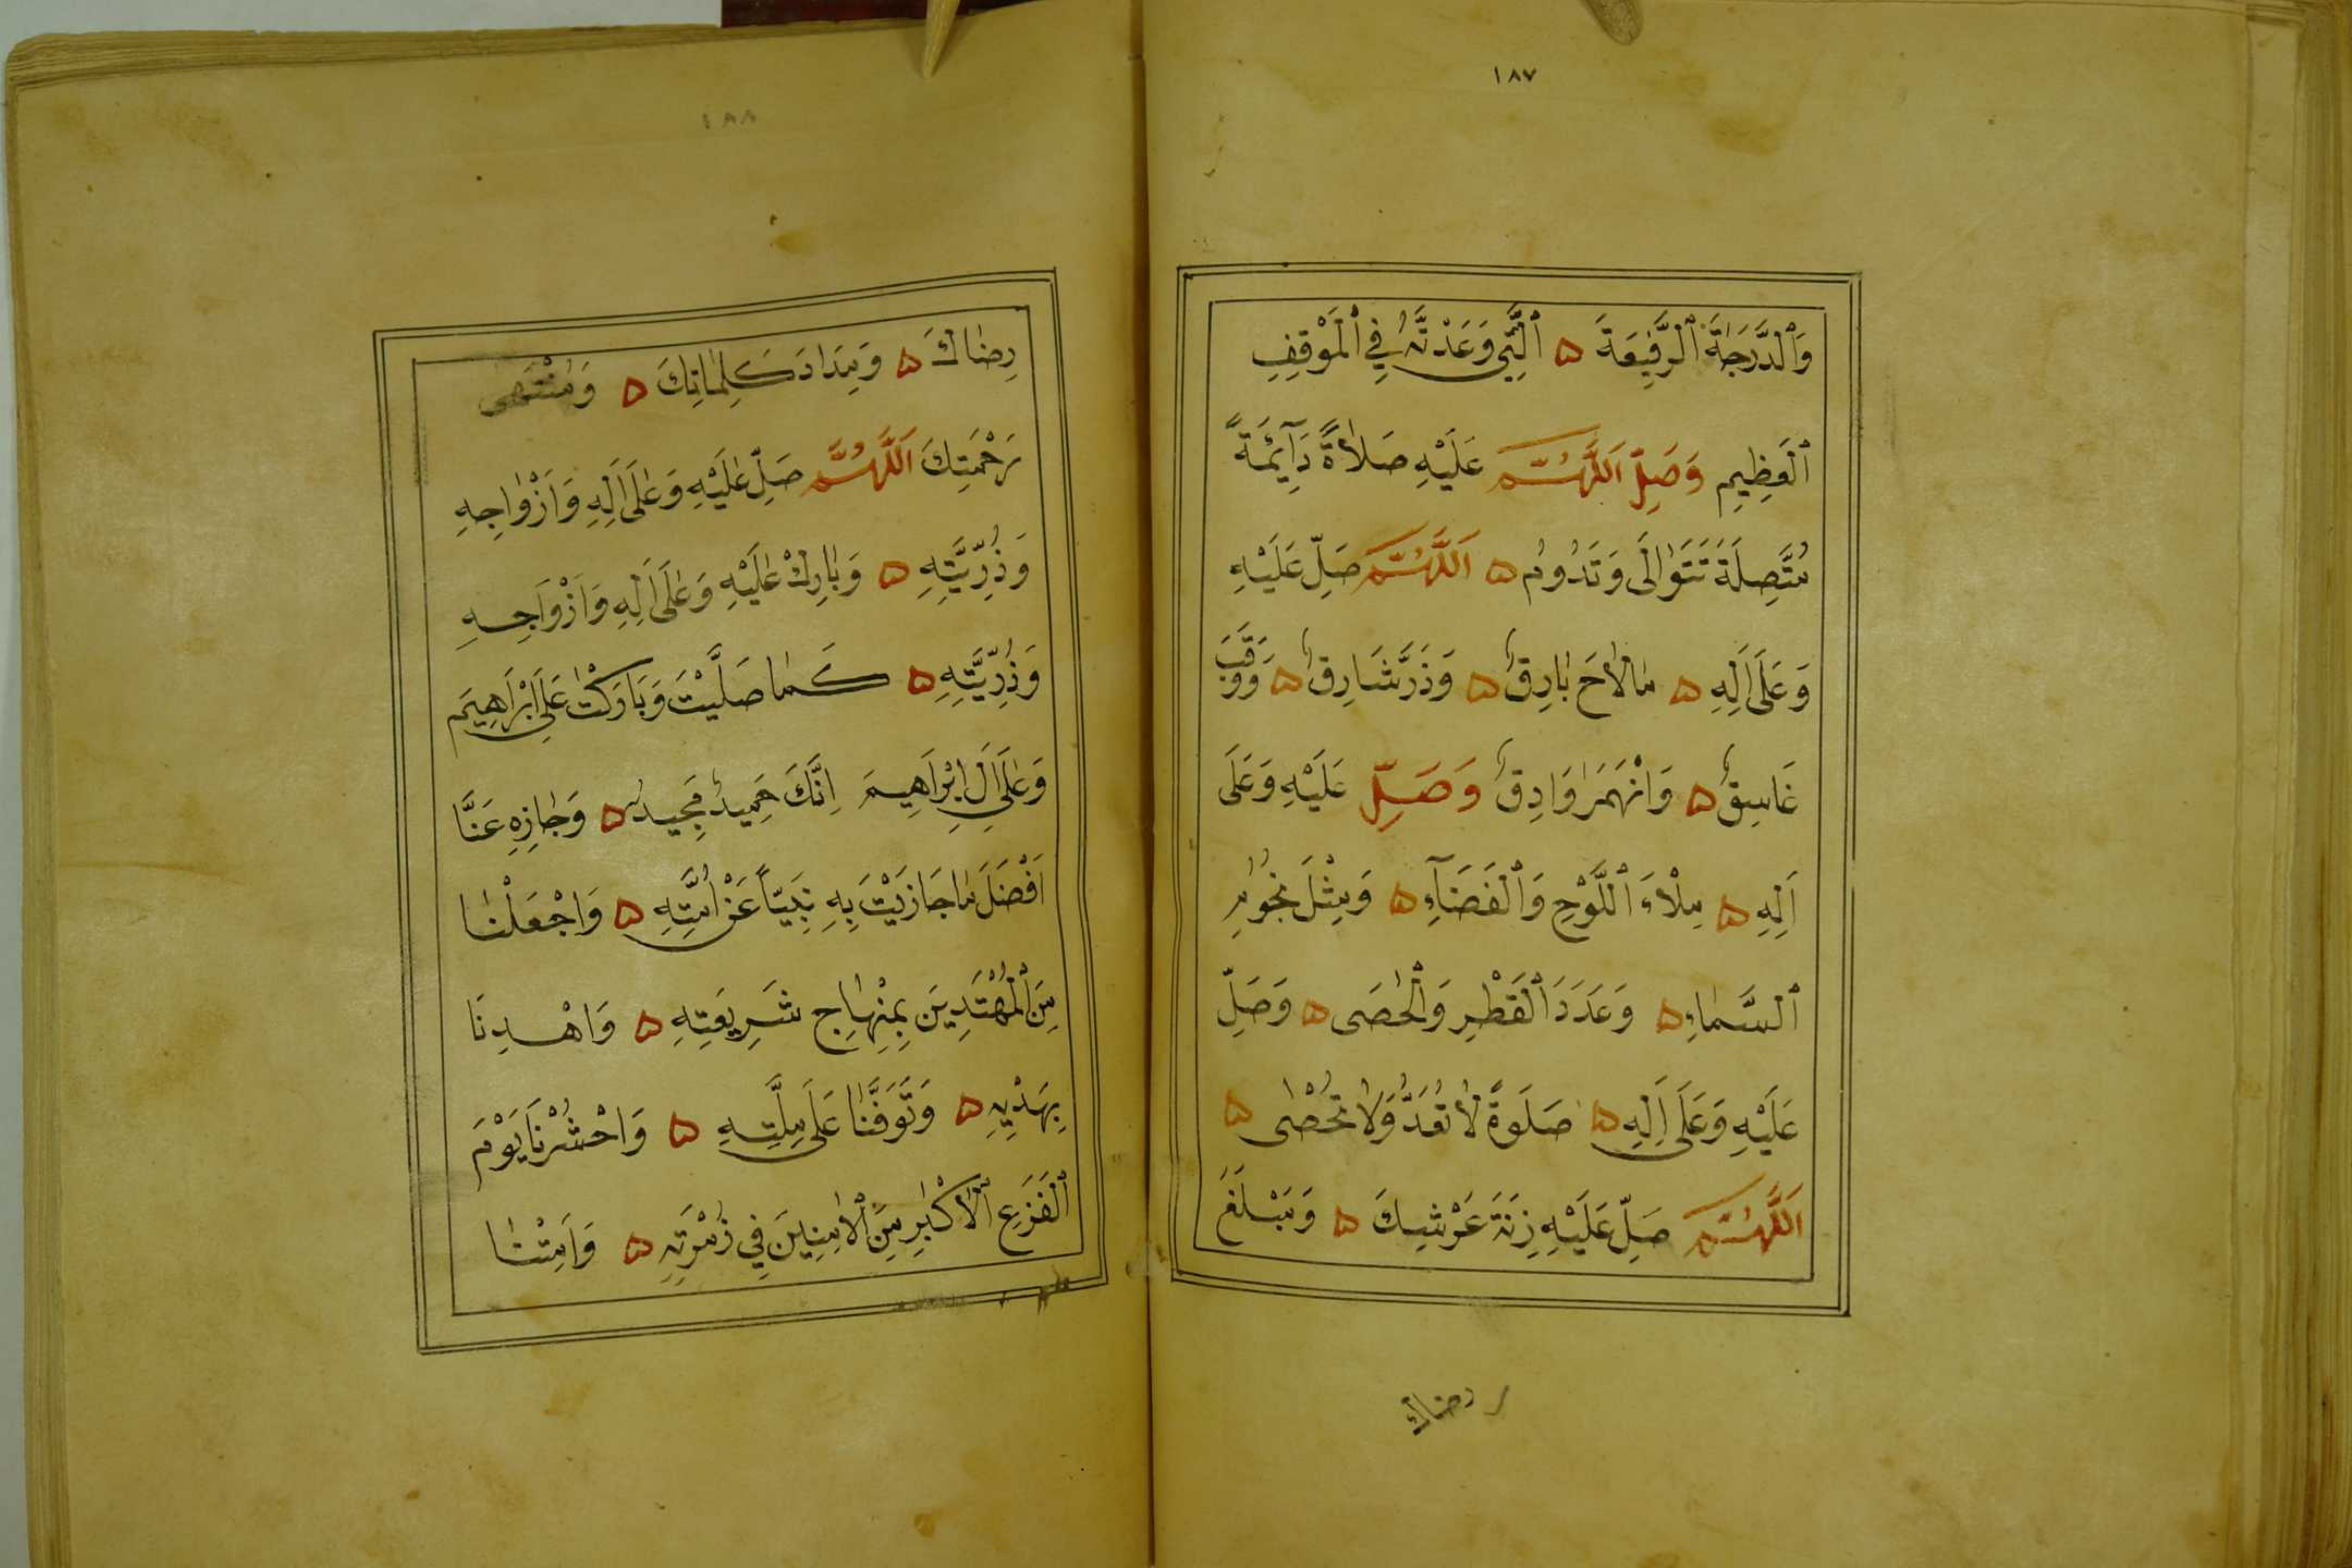 ١٨٧
وَٱلْدَّرَجَةَ ٱلْرَّفِيعَةَ ۵ ٱلَّتِي وَعَدْتَّهُ فِي ٱلْمَوْقِفِ
ٱلْعَظِيمِ وَصَلِّ اَللَّهُمَّ عَلَيْهِ صَلاٰةً دَآئِمَةً
مُتَّصِلَةً تَتَوٰالَى وَتَدُومُ ۵ اَللَّهُمَّ صَلِّ عَلَيْهِ
وَعَلَى اَلِهِ ۵ مٰالاٰحَ بٰارِقٌ ۵ وَذَرَّ شَارِقٌ ۵ وَوَقَبَ
غَاسِقٌ ۵ وَانْهَمَرَ وَادِقٌ وَصَلِّ عَلَيْهِ وَعَلَى
اَلِهِ ۵ مِلْاءَ ٱللَّوْحِ وَٱلْفَضَآءِ ۵ وَمِثْلَ نُجُومِ
ٱلْسَّمٰاءِ ۵ وَعَدَدَ ٱلْقَطْرِ وَٱلْحَصَى ۵ وَصَلِّ
عَلَيْهِ وَعَلَى اَلِهِ ۵ صَلَوةً لاٰ تُعَدُّ وَلاٰ تُحْصٰى ۵
اَللَّهُمَّ صَلِّ عَلَيْهِ زِنَةَ عَرْشِكَ ۵ وَمَبْلَغَ
رضاك
١٨٨
رِضٰاكَ ۵ وَمِدَادَ كَلِمٰاتِكَ ۵ وَمُنْتَهَى
رَحْمَتِكَ اَللَّهُمَّ صَلِّ عَلَيْهِ وَعَلَى اَلِهِ وَاَزْوٰاجِهِ
وَذُرِّيَّتِهِ ۵ وَبٰارِكْ عَلَيْهِ وَعَلَى اَلِهِ وَاَزْوَاجِهِ
وَذُرِّيَّتِهِ ۵ كَمٰا صَلَّيْتَ وَبَارَكْتَ عَلَى اِبْرَاهِيمَ
وَعَلَى اَلِ اِبْرَاهِيمَ اِنَّكَ حَمِيدٌ مَجِيدٌ ۵ وَجٰازِهِ عَنَّا
اَفْضَلَ مٰا جَازَيْتَ بِهِ نَبِيّاً عَنْ اُمَّتِهِ ۵ وَاجْعَلْنٰا
مِنَ ٱلْمُهْتَدِينَ بِمِنْهٰاجِ شَرِيعَتِهِ ۵ وَاهْدِنَا
بِهَدْيِهِ ۵ وَتَوَفَّنٰا عَلَى مِلَّتِهِ ۵ وَاحْشُرْنَا يَوْمَ
ٱلْفَزَعِ ٱلْاَكْبَرِ مِنَ ٱلْاٰمِنِينَ فِي زُمْرَتِهِ ۵ وَاَمِتْنٰا